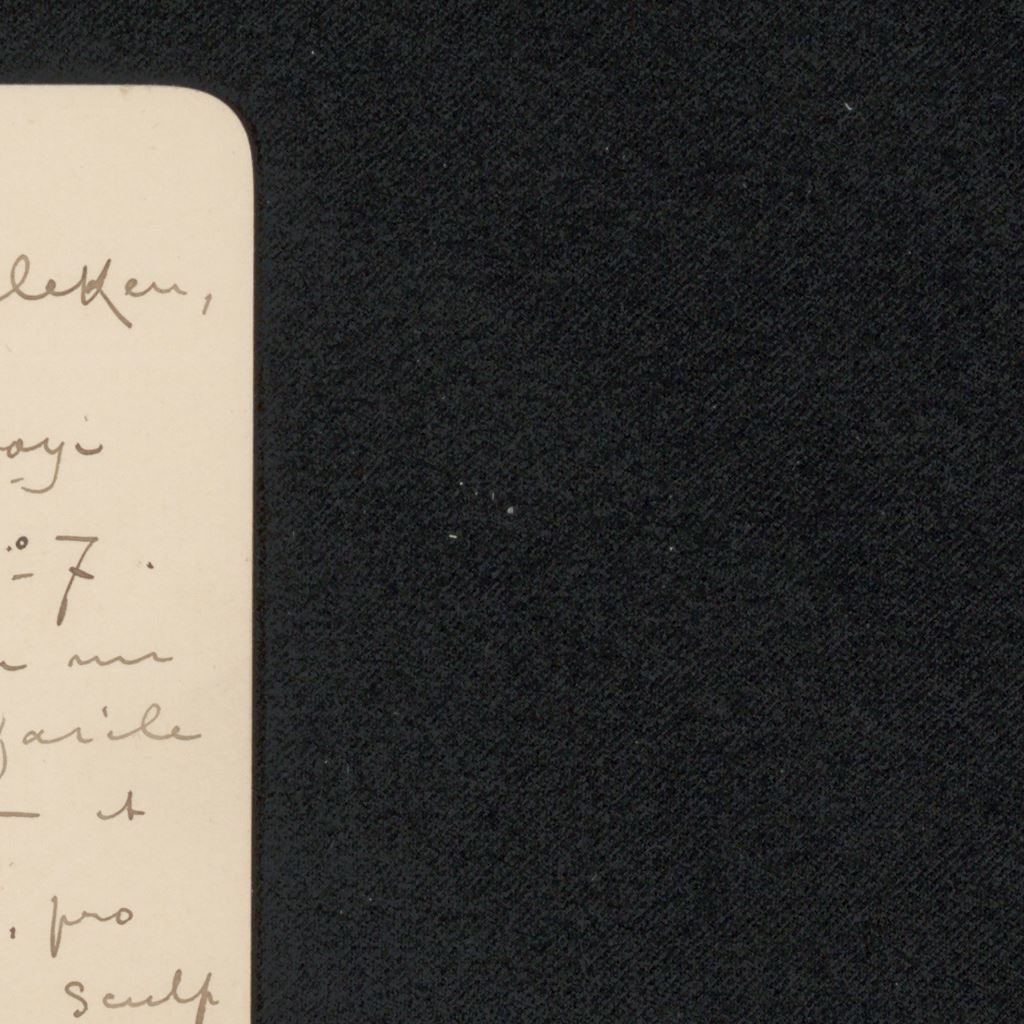 leken,
oyé
o 7.
un
facile
et
. pro
Sculp